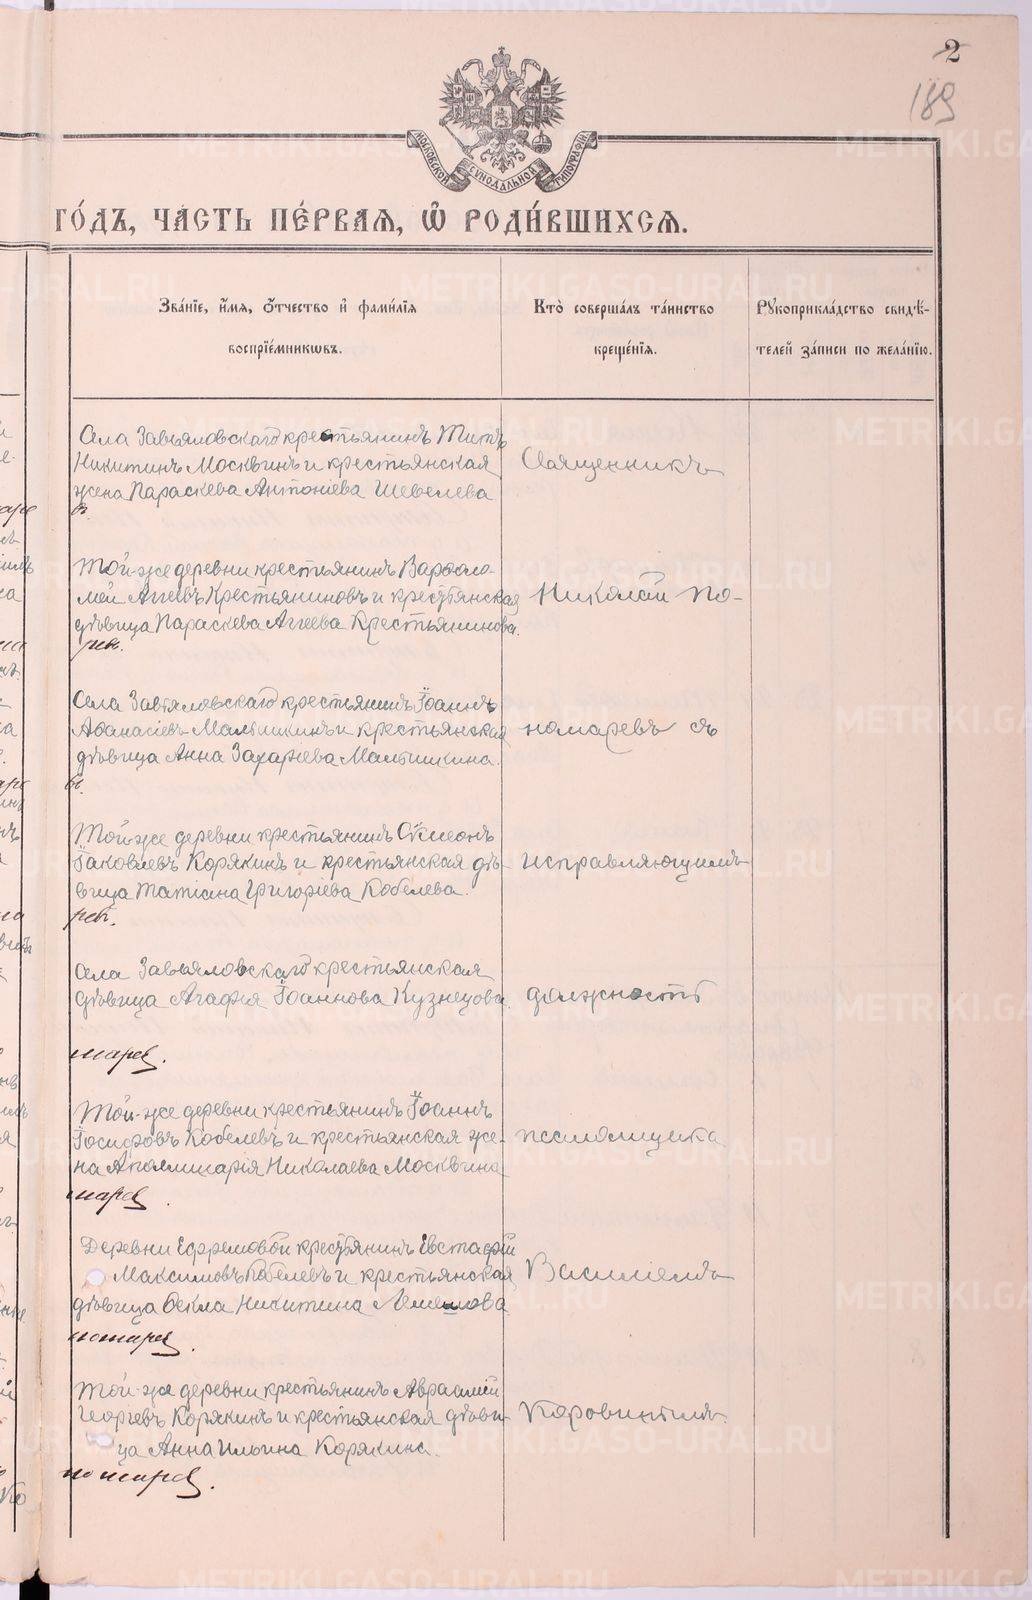 2
189
МОСКОВСКОЙ СѴНОДАЛЬНОЙ ТИПОГРАФІИ
ГО́ДЪ, ЧА́СТЬ ПЕ́РВАѦ, Ѡ҆ РОДИ́ВШИХСѦ.
Зва́нїе, и҆́мѧ, ѻ҆́тчество и҆ фами́лїѧ
воспрїе́мникѡвъ.
Кто̀ соверша́лъ та́инство
креще́нїѧ.
Рꙋкоприкла́дство свидѣ́-
телей за́писи по жела́нїю.
Села Завьяловскаго крестьянинъ Титъ
Никитинъ Москвинъ и крестьянская
жена Параскева Антоніева Шевелева
Священникъ
Той-же деревни крестьянинъ Варѳоло-
мей Аггеевъ Крестьяниновъ и крестьянская
дѣвица Параскева Аггеева Крестьянинова.
Николай По-
Села Завьяловскаго крестьянинъ Іоаннъ
Аѳанасіевъ Малышкинъ и крестьянская
дѣвица Анна Захаріева Малышкина.
номаревъ съ
Той-же деревни крестьянинъ Сѵмеонъ
Іаковлевъ Корякинъ и крестьянская дѣ-
вица Татіана Григоріева Кобелева.
исправляющимъ
Села Завьяловскаго крестьянская
дѣвица Агафія Іоаннова Кузнецова.
должность
Той-же деревни крестьянинъ Іоаннъ
Іосифовъ Кобелевъ и крестьянская же-
на Аполлинарія Николаева Москвина
псаломщика
Деревни Ефремовой крестьянинъ Евстафій
Максимовъ Кобелевъ и крестьянская
дѣвица Ѳекла Никитина
Василіемъ
Той-же деревни крестьянинъ Авраамій
Георгіевъ Корякинъ и крестьянская дѣви-
ца Анна Ильина Корякина.
Коровинымъ.
METRIKI.GASO-URAL.RU